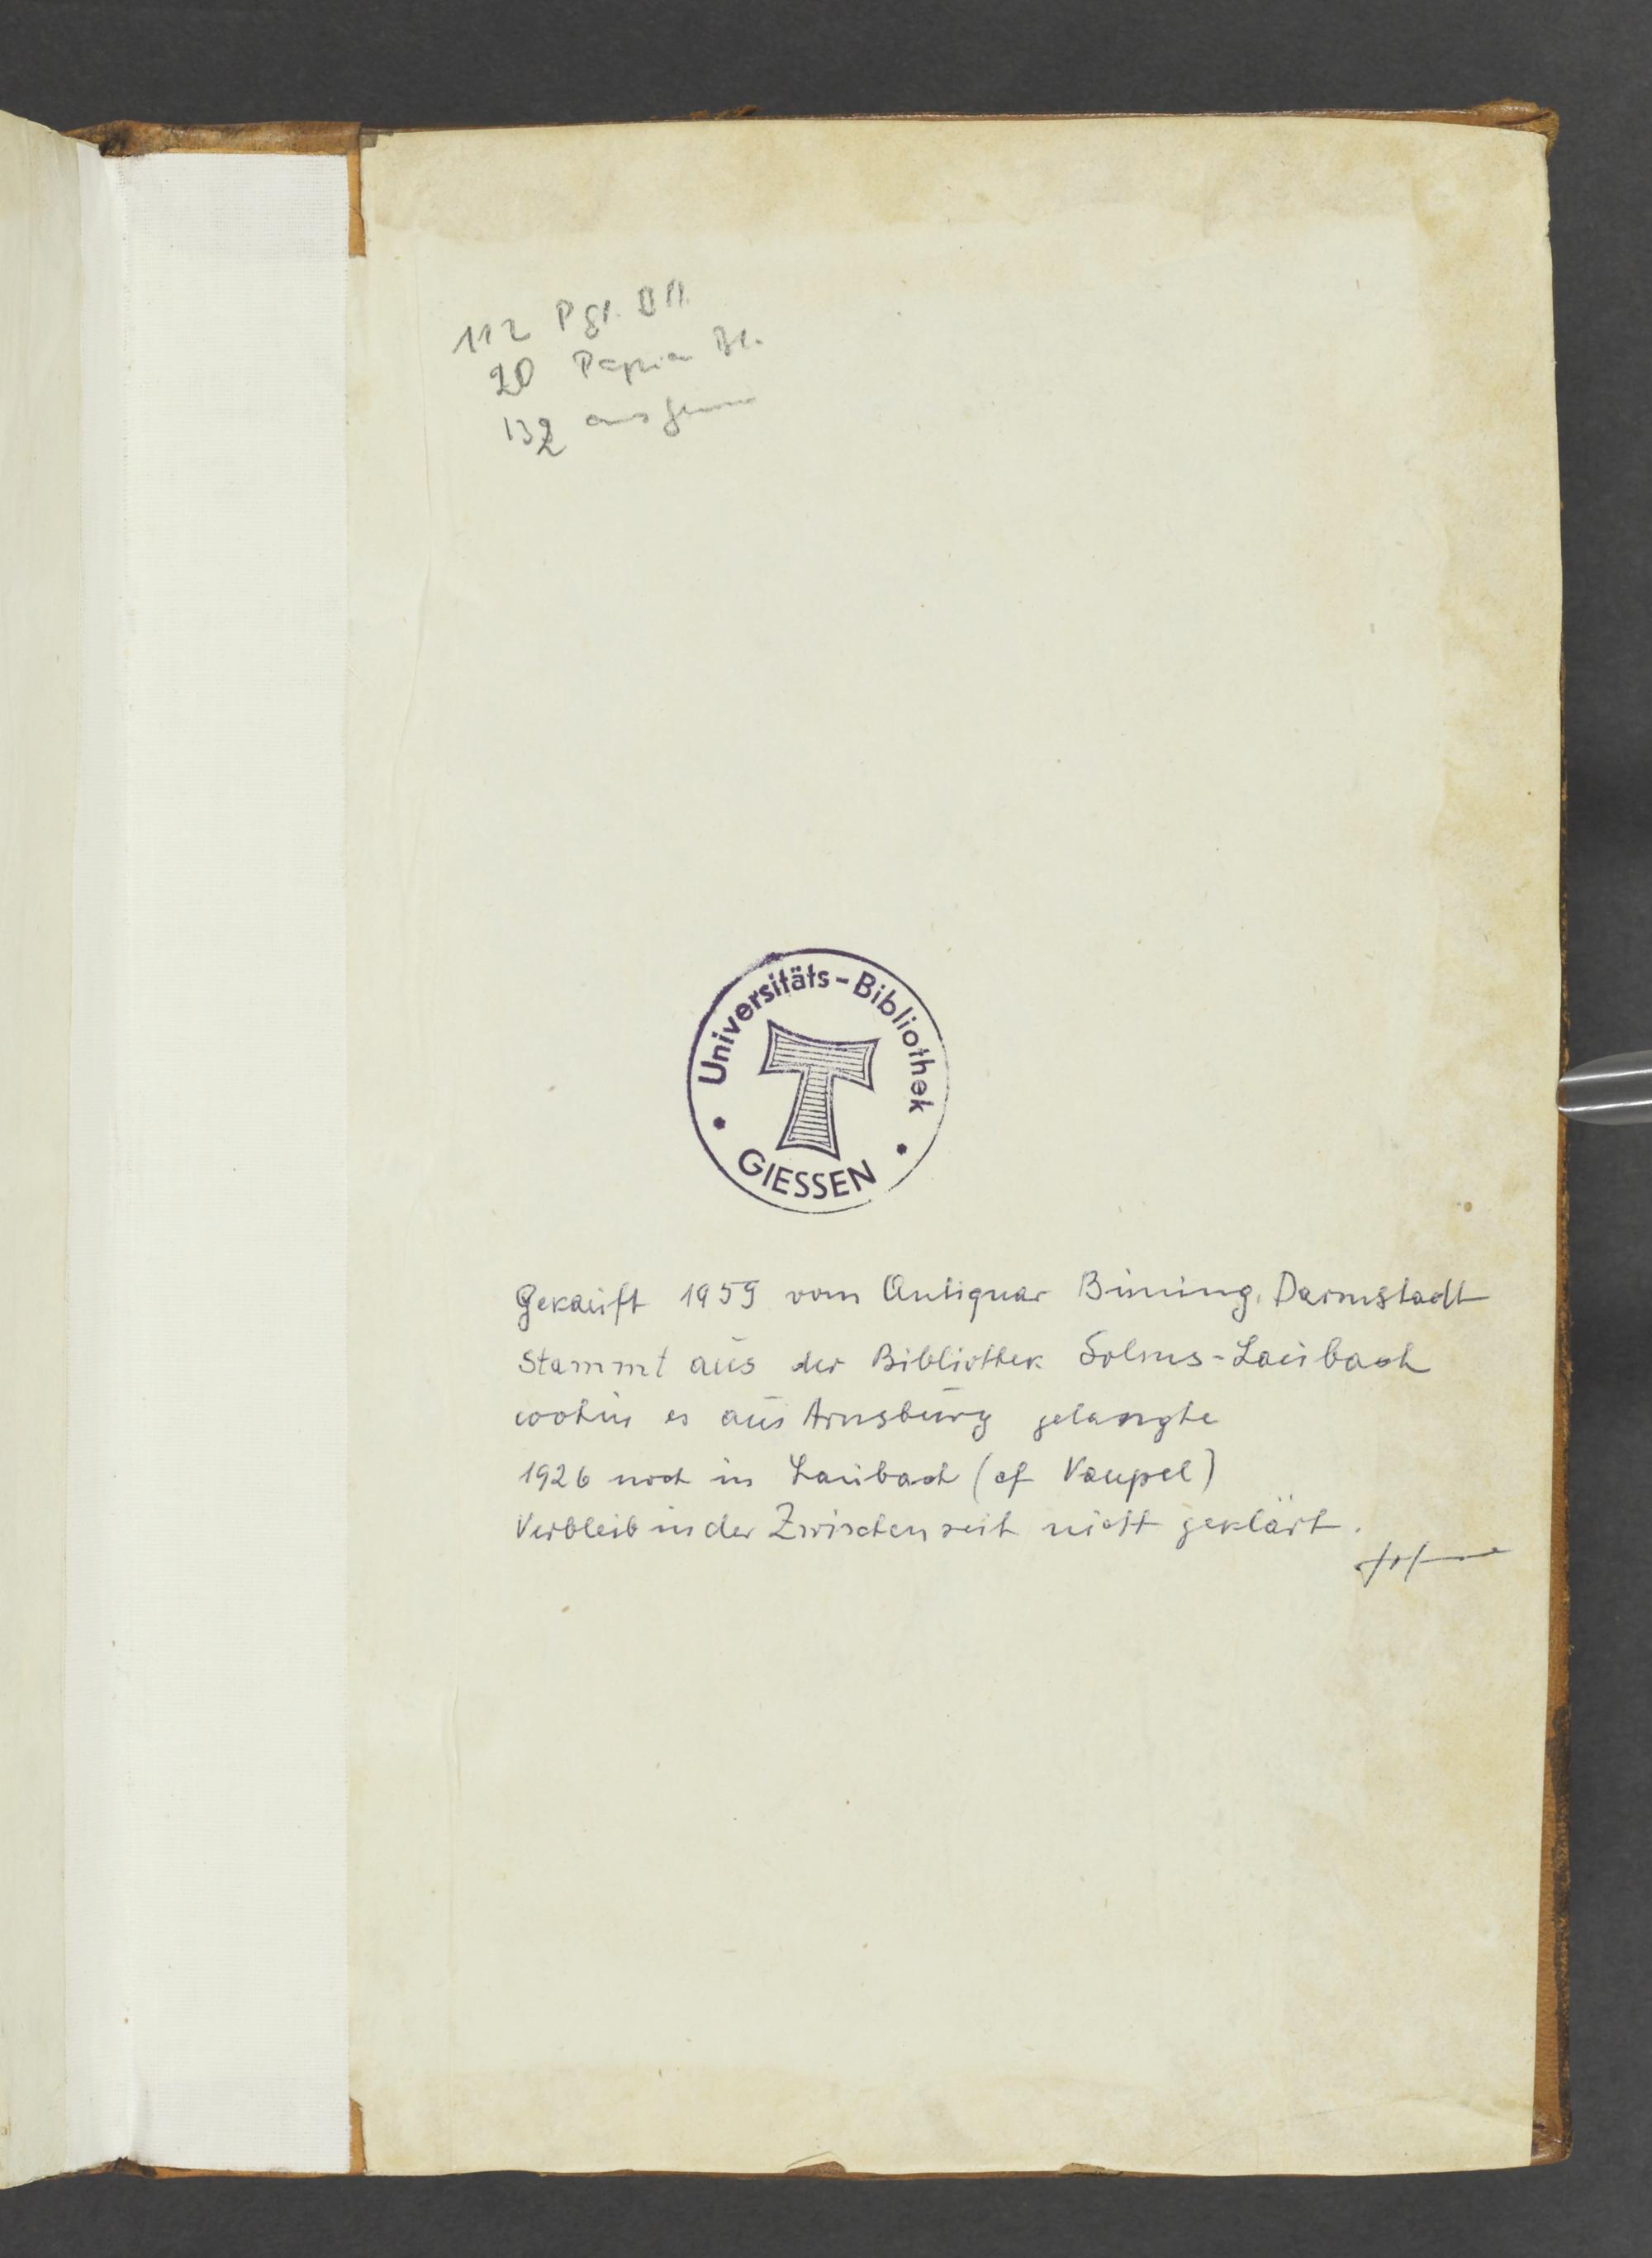 112 Pgt. Bll.
20 Papier Bl.
132
Universitäts-Bibliothek
GIESSEN
Gekauft 1959 vom Antiquar Bining, Darmstadt
Stammt aus der Bibliothek Solms-Laubach
wohin es aus Arnsburg gelangte
1926 noch in Laubach (cf Vaupel)
Verbleib in der Zwischenzeit nicht geklärt.